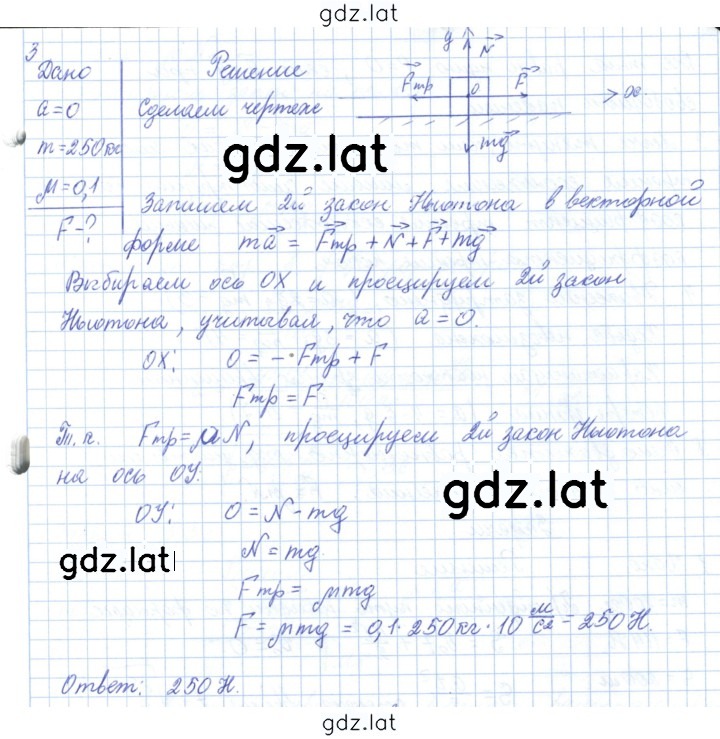 gdz.lat
3
Дано
a = 0
m = 250 кг
μ = 0,1
F - ?
Решение
Сделаем чертеж
y N
Fтр 0 F ox
mg
gdz.lat
Запишем 2й закон Ньютона в векторной
форме ma⃗ = F⃗тр + N⃗ + F⃗ + mg⃗
Выбираем ось OX и проецируем 2й закон
Ньютона, учитывая, что a = 0.
OX: 0 = - Fтр + F
Fтр = F.
Т.к. Fтр = μN, проецируем 2й закон Ньютона
на ось OY.
gdz.lat
OY: 0 = N - mg
gdz.lat
N = mg.
Fтр = μmg
F = μmg = 0,1 · 250 кг · 10 м/с2 = 250 Н.
Ответ: 250 Н.
gdz.lat